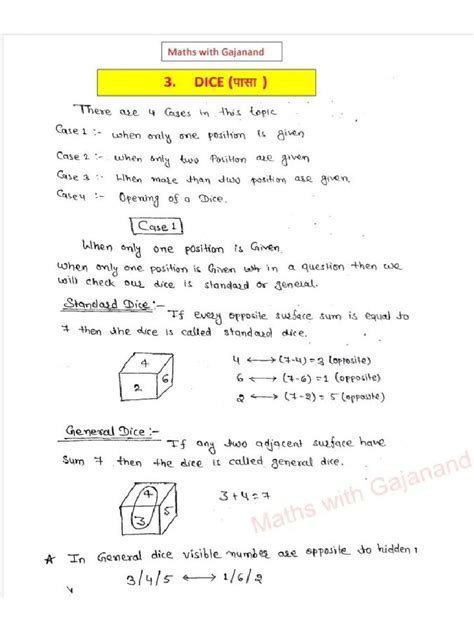 Maths with Gajanand
3. DICE (पासा )
There are 4 Cases in this topic
Case 1 :- when only one position is given
Case 2 :- when only two Position are given
Case 3 :- When more than two position are given
Case 4 :- Opening of a Dice.
Case 1
When only one position is Given.
When only one position is Given in a question then we
will check our dice is standard or general.
Standard Dice :-
If every opposite surface sum is equal to
7 then the dice is called standard dice.
4 ⟷ (7-4)=3 (opposite)
4
6 ⟷ (7-6)=1 (opposite)
6
2
2 ⟷ (7-2)=5 (opposite)
General Dice :-
If any two adjacent surface have
Sum 7, then the dice is called general dice.
4
3+4=7
5
3
Maths with Gajanand
In General dice visible number are opposite to hidden
3/4/5 ⟷ 1/6/2